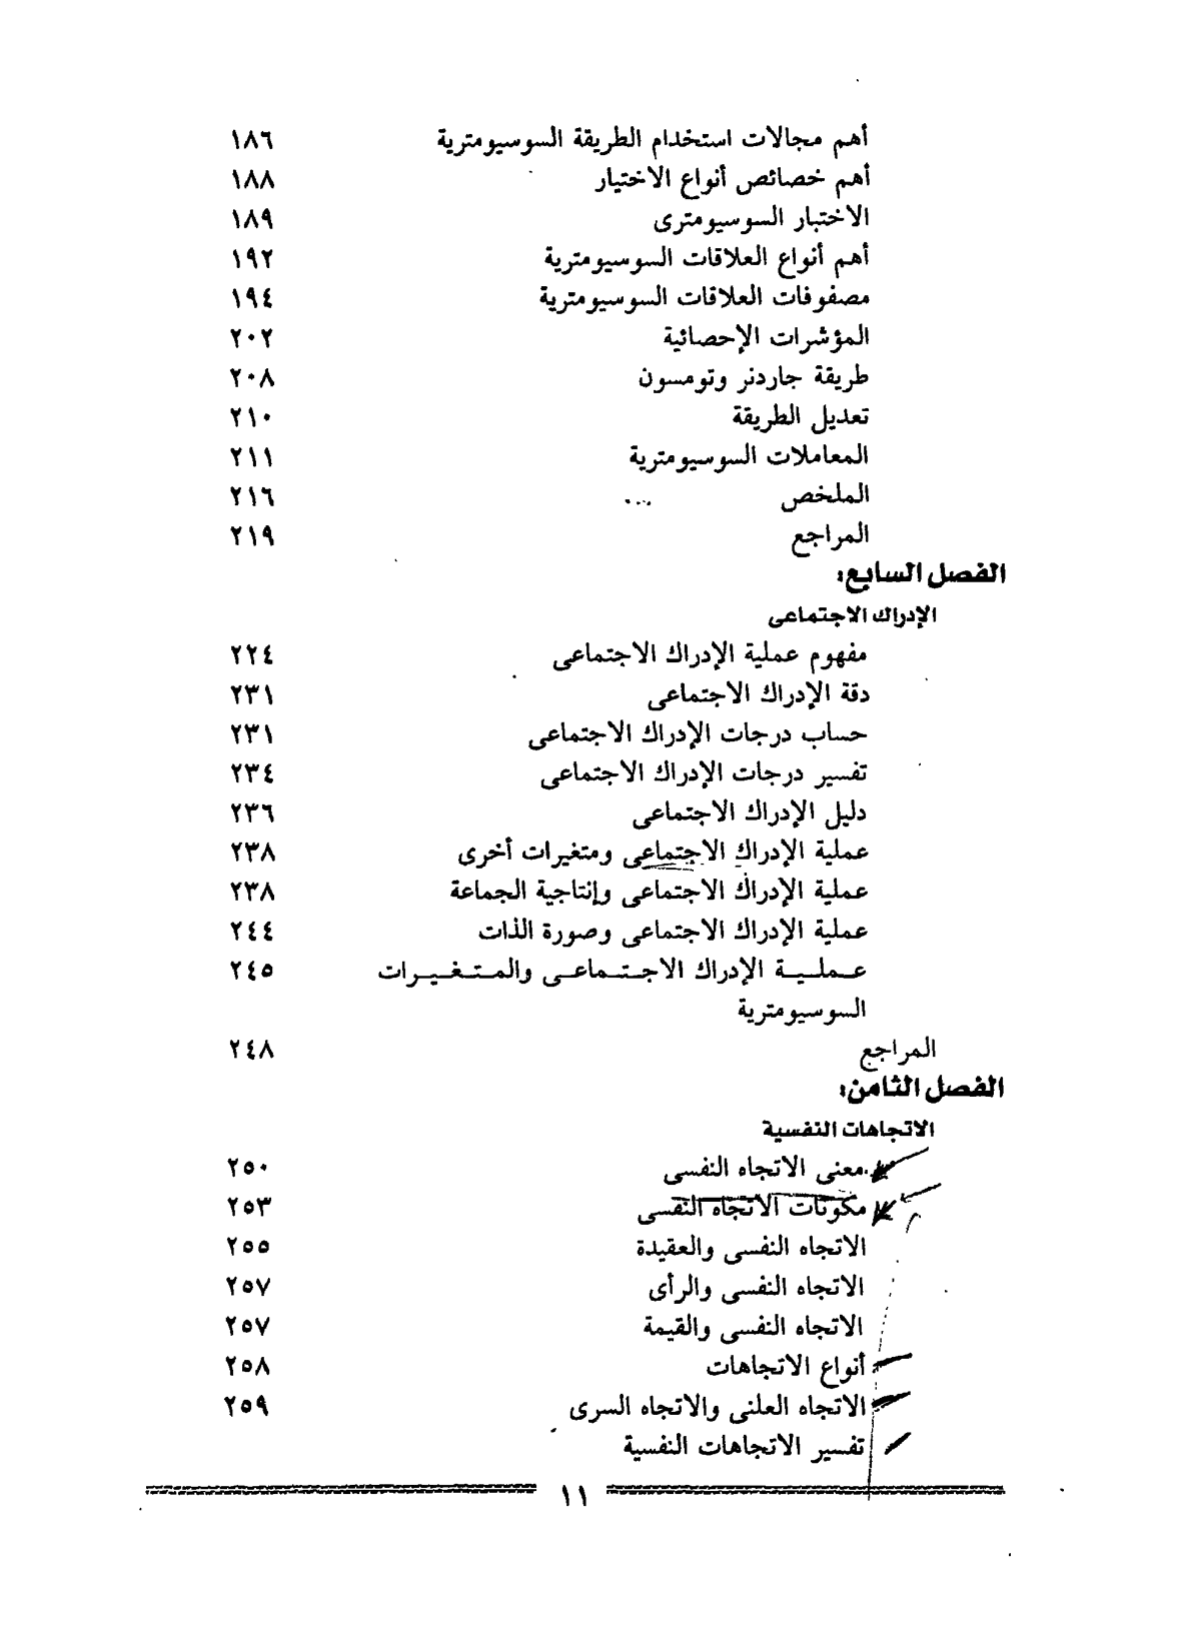 أهم مجالات استخدام الطريقة السوسيومترية ١٨٦
أهم خصائص أنواع الاختيار ١٨٨
الاختبار السوسيومترى ١٨٩
أهم أنواع العلاقات السوسيومترية ١٩٢
مصفوفات العلاقات السوسيومترية ١٩٤
المؤشرات الإحصائية ٢٠٢
طريقة جاردنر وتومسون ٢٠٨
تعديل الطريقة ٢١٠
المعاملات السوسيومترية ٢١١
الملخص ٢١٦
المراجع ٢١٩
الفصل السابع:
الإدراك الاجتماعى
مفهوم عملية الإدراك الاجتماعى ٢٢٤
دقة الإدراك الاجتماعى ٢٣١
حساب درجات الإدراك الاجتماعى ٢٣١
تفسير درجات الإدراك الاجتماعى ٢٣٤
دليل الإدراك الاجتماعى ٢٣٦
عملية الإدراك الاجتماعى ومتغيرات أخرى ٢٣٨
عملية الإدراك الاجتماعى وإنتاجية الجماعة ٢٣٨
عملية الإدراك الاجتماعى وصورة الذات ٢٤٤
عملية الإدراك الاجتماعى والمتغيرات ٢٤٥
السوسيومترية
المراجع ٢٤٨
الفصل الثامن:
الاتجاهات النفسية
معنى الاتجاه النفسى ٢٥٠
مكونات الاتجاه النفسى ٢٥٣
الاتجاه النفسى والعقيدة ٢٥٥
الاتجاه النفسى والرأى ٢٥٧
الاتجاه النفسى والقيمة ٢٥٧
أنواع الاتجاهات ٢٥٨
الاتجاه العلنى والاتجاه السرى ٢٥٩
تفسير الاتجاهات النفسية
١١